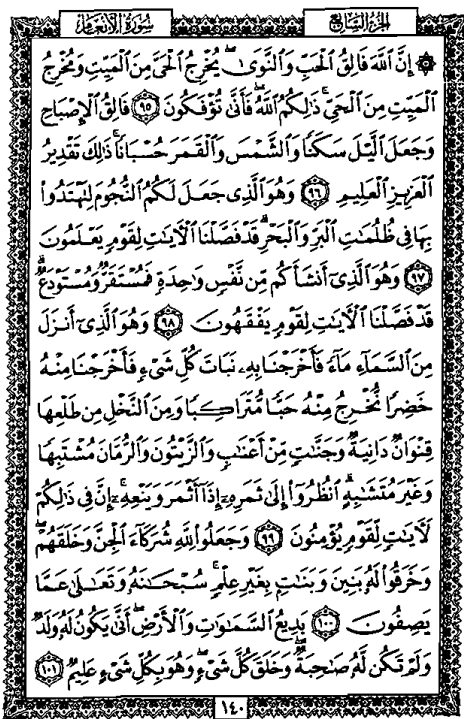 الجزء السابع
سورة الأنعام
۞ إِنَّ ٱللَّهَ فَالِقُ ٱلْحَبِّ وَٱلنَّوَىٰ ۖ يُخْرِجُ ٱلْحَىَّ مِنَ ٱلْمَيِّتِ وَمُخْرِجُ
ٱلْمَيِّتِ مِنَ ٱلْحَىِّ ۚ ذَٰلِكُمُ ٱللَّهُ ۖ فَأَنَّىٰ تُؤْفَكُونَ ٩٥ فَالِقُ ٱلْإِصْبَاحِ
وَجَعَلَ ٱلَّيْلَ سَكَنًا وَٱلشَّمْسَ وَٱلْقَمَرَ حُسْبَانًا ۚ ذَٰلِكَ تَقْدِيرُ
ٱلْعَزِيزِ ٱلْعَلِيمِ ٩٦ وَهُوَ ٱلَّذِى جَعَلَ لَكُمُ ٱلنُّجُومَ لِتَهْتَدُوا۟
بِهَا فِى ظُلُمَٰتِ ٱلْبَرِّ وَٱلْبَحْرِ ۗ قَدْ فَصَّلْنَا ٱلْءَايَٰتِ لِقَوْمٍ يَعْلَمُونَ
٩٧ وَهُوَ ٱلَّذِىٓ أَنشَأَكُم مِّن نَّفْسٍ وَٰحِدَةٍ فَمُسْتَقَرٌّ وَمُسْتَوْدَعٌ ۗ
قَدْ فَصَّلْنَا ٱلْءَايَٰتِ لِقَوْمٍ يَفْقَهُونَ ٩٨ وَهُوَ ٱلَّذِىٓ أَنزَلَ
مِنَ ٱلسَّمَآءِ مَآءً فَأَخْرَجْنَا بِهِۦ نَبَاتَ كُلِّ شَىْءٍ فَأَخْرَجْنَا مِنْهُ
خَضِرًا نُّخْرِجُ مِنْهُ حَبًّا مُّتَرَاكِبًا وَمِنَ ٱلنَّخْلِ مِن طَلْعِهَا
قِنْوَانٌ دَانِيَةٌ وَجَنَّٰتٍ مِّنْ أَعْنَابٍ وَٱلزَّيْتُونَ وَٱلرُّمَّانَ مُشْتَبِهًا
وَغَيْرَ مُتَشَٰبِهٍ ۗ ٱنظُرُوٓا۟ إِلَىٰ ثَمَرِهِۦٓ إِذَآ أَثْمَرَ وَيَنْعِهِۦٓ ۚ إِنَّ فِى ذَٰلِكُمْ
لَءَايَٰتٍ لِّقَوْمٍ يُؤْمِنُونَ ٩٩ وَجَعَلُوا۟ لِلَّهِ شُرَكَآءَ ٱلْجِنَّ وَخَلَقَهُمْ ۖ
وَخَرَقُوا۟ لَهُۥ بَنِينَ وَبَنَٰتٍۭ بِغَيْرِ عِلْمٍ ۚ سُبْحَٰنَهُۥ وَتَعَٰلَىٰ عَمَّا
يَصِفُونَ ١٠٠ بَدِيعُ ٱلسَّمَٰوَٰتِ وَٱلْأَرْضِ ۖ أَنَّىٰ يَكُونُ لَهُۥ وَلَدٌ
وَلَمْ تَكُن لَّهُۥ صَٰحِبَةٌ ۖ وَخَلَقَ كُلَّ شَىْءٍ ۖ وَهُوَ بِكُلِّ شَىْءٍ عَلِيمٌ ١٠١
١٤٠